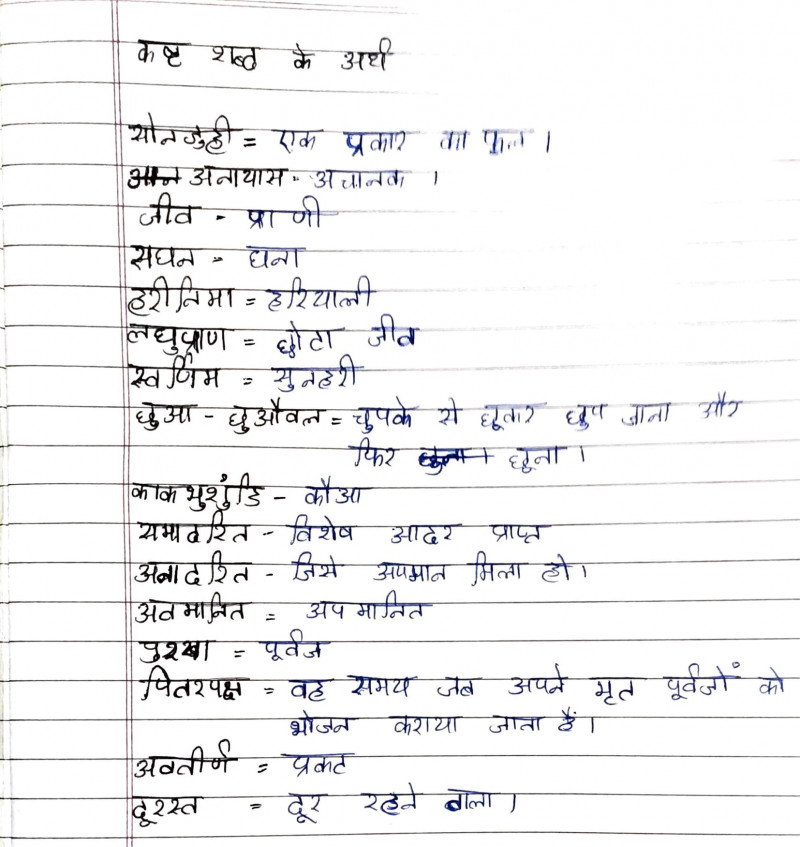 कष्ट शब्द के अर्थ
सोनजुही = एक प्रकार का फूल ।
अनायास - अचानक ।
जीव - प्राणी
सघन - घना
हरीतिमा = हरियाली
लघुप्राण = छोटा जीव
स्वर्णिम = सुनहरी
छुआ - छुऔवल = चुपके से छूकर छुप जाना और
फिर छूना ।
काकभुशुंडि - कौआ
समादरित - विशेष आदर प्राप्त
अनादरित - जिसे अपमान मिला हो।
अवमानित = अपमानित
पुरखा = पूर्वज
पितरपक्ष = वह समय जब अपने मृत पूर्वजों को
भोजन कराया जाता हैं।
अवतीर्ण = प्रकट
दूरस्त = दूर रहने वाला ।